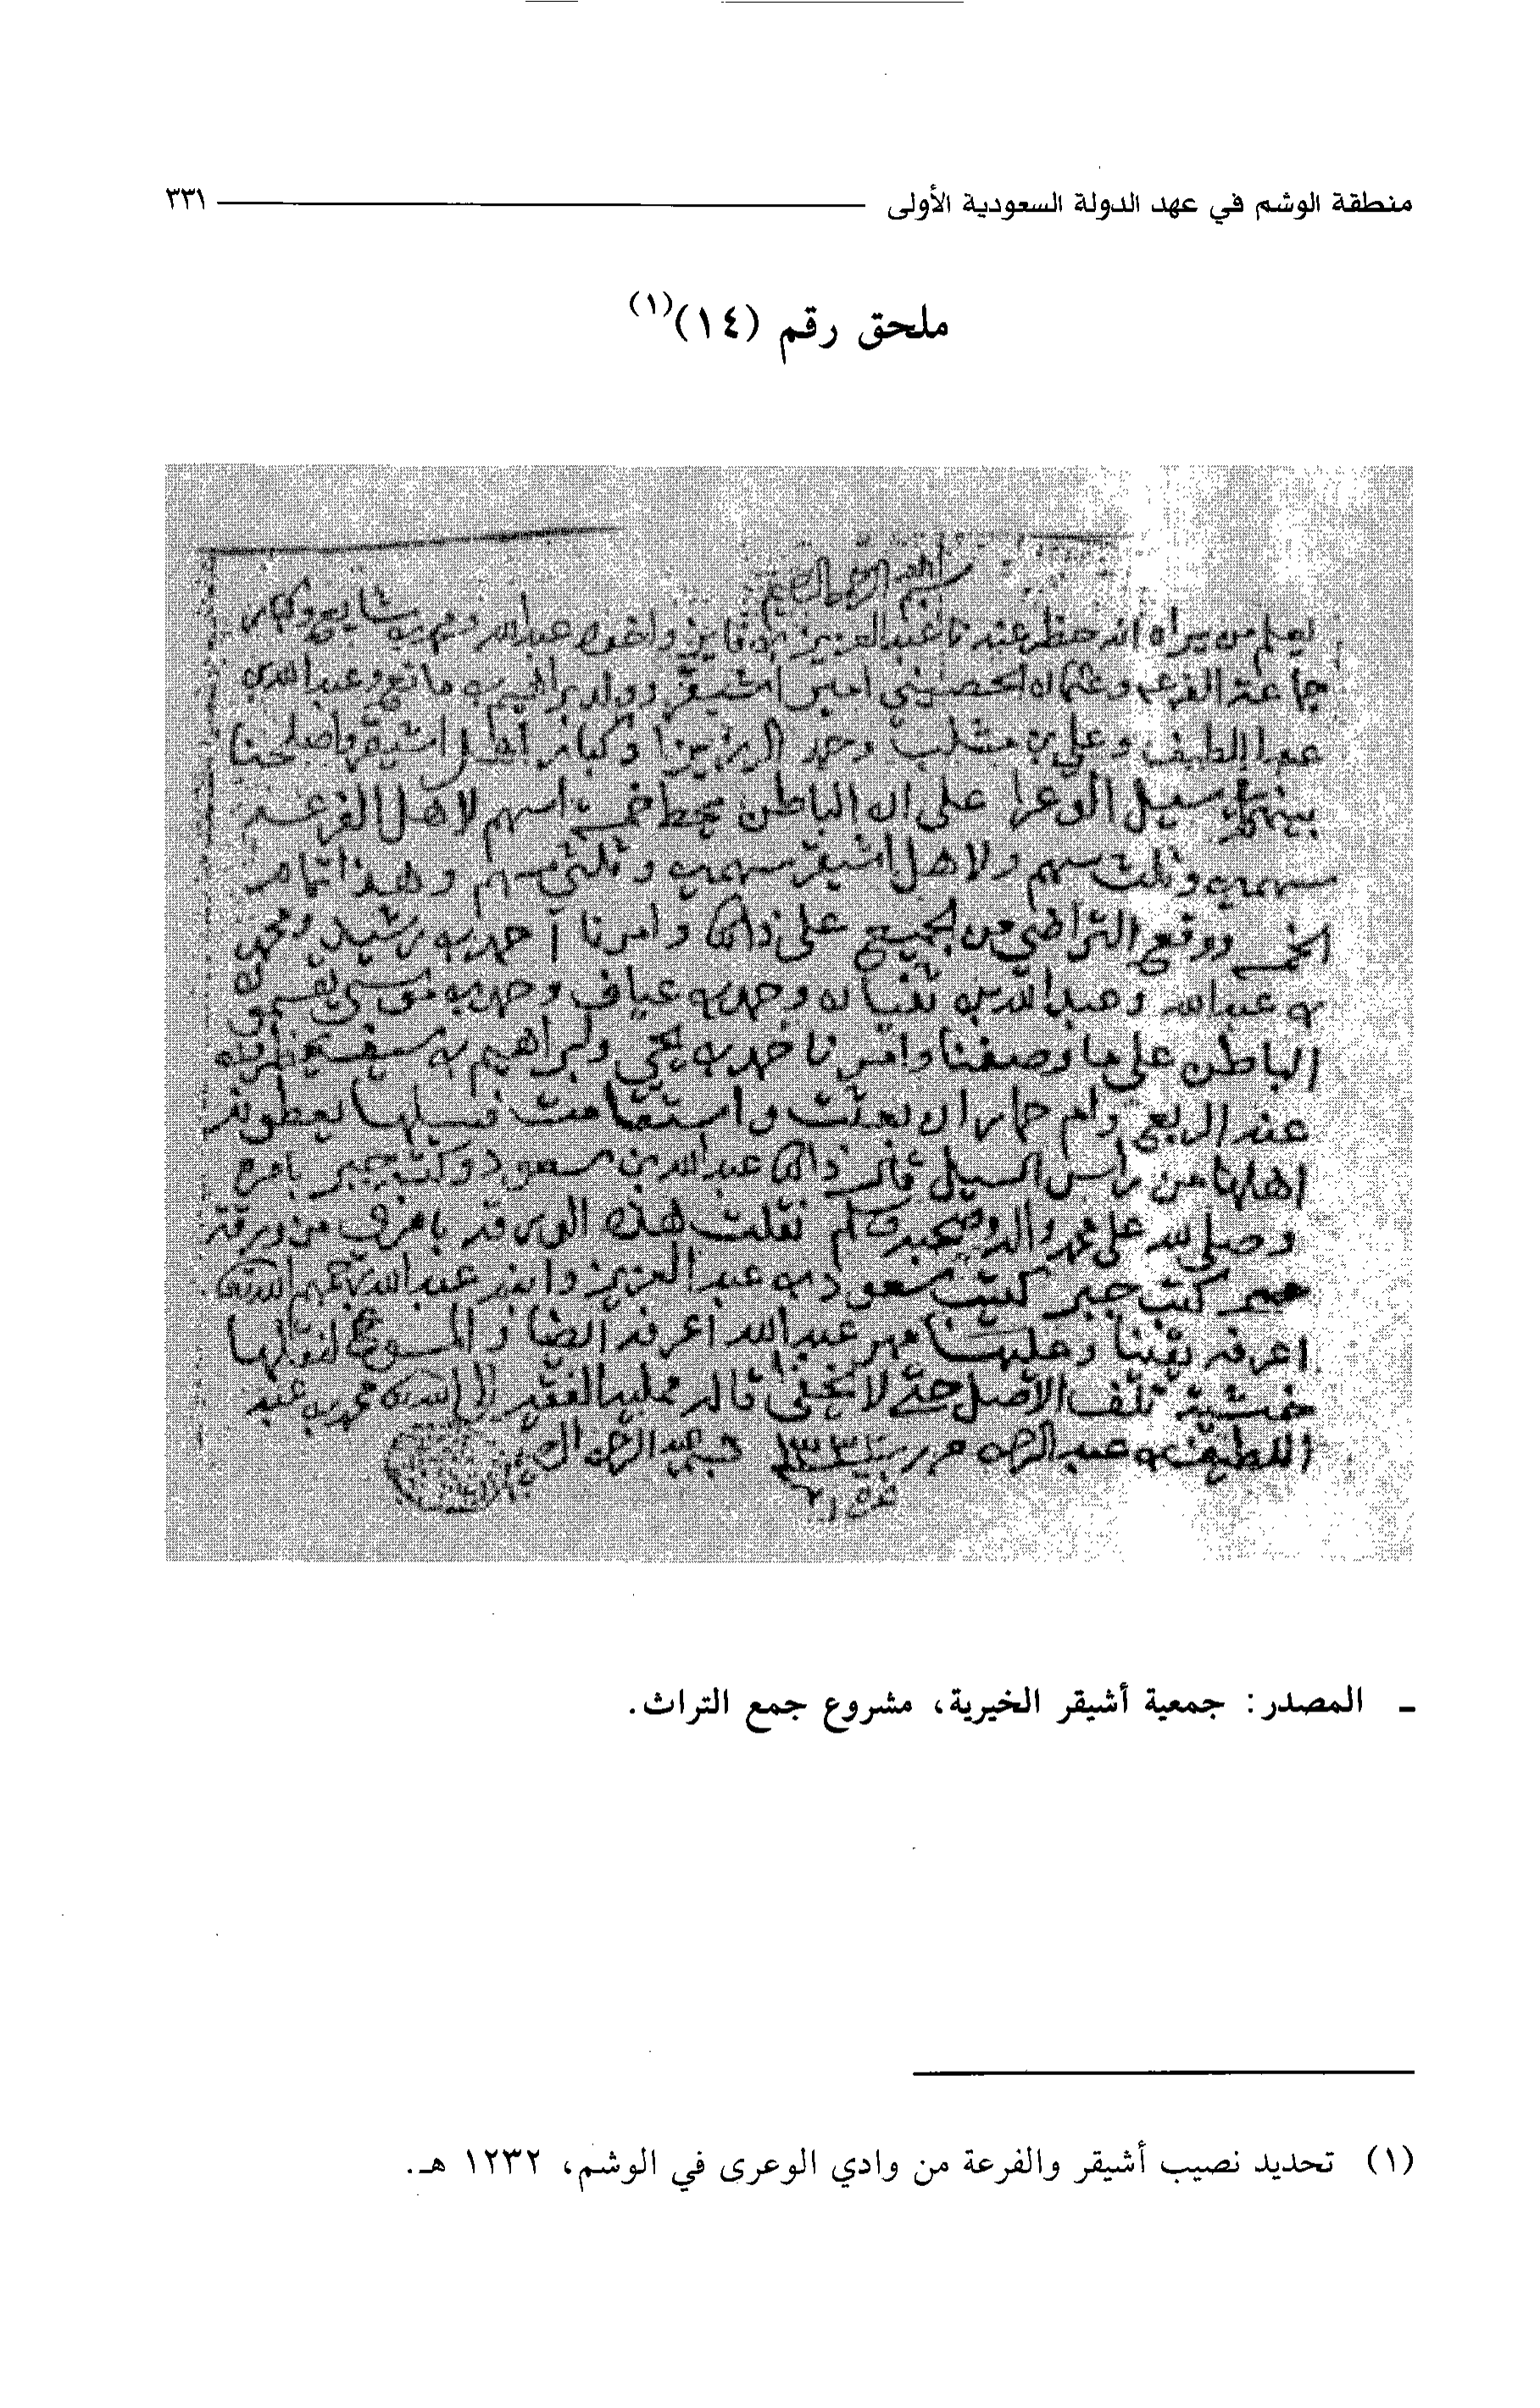 منطقة الوشم في عهد الدولة السعودية الأولى ٣٣١
ملحق رقم (١٤)(١)
بسم الله الرحمن الرحيم
يعلم من يراه انه حظر عندنا عبدالعزيز بن فايز واخوه عبدالله و بن شايع وكبار
جماعة الفرعه وعثمان الحصيني امير اشيقر وولد ابراهيم بن مانع وعبدالله بن
عبداللطيف وعلي بن وحمد الرزيزا وكبار أهل اشيقر واصلحنا
بينهم سيل الوعرا على ان الباطن يحط خمسة اسهم لاهل الفرعه
سهمين وثلث سهم ولاهل اشيقر سهمين وثلثي سهم وهذا تمام
الخمسه ووقع التراضي من الجميع على ذالك وامرنا احمد بن رشيد ومحمد
بن عبدالله وعبدالله بن ثنيان وحمد بن عياف وحمد بن موسى يقسمون
الباطن على ما وصفنا وامرنا حمد بن يحي وابراهيم بن سيف ينظرون
عند الربع وام حمار ان بعثت واستقامت فسيلها يعطونه
اهلها من راس السيل قال ذالك عبدالله بن سعود وكتبه جبر بامره
وصلى الله على محمد واله وصحبه وسلم نقلت هذه الورقه بامره من ورقة
كتب جبر كتبت سعود بن عبدالعزيز وابنه عبدالله
اعرفه يقينا وعليها مهر عبدالله اعرفه ايضا والمسوغ لنقلها
خشية تلف الأصل حتى لا يخفى قاله ممليه الفقير إلى الله محمد بن عبد
اللطيف بن عبدالرحمن حرر سنة
- المصدر: جمعية أشيقر الخيرية، مشروع جمع التراث.
(١) تحديد نصيب أشيقر والفرعة من وادي الوعرى في الوشم، ١٢٣٢ هـ.